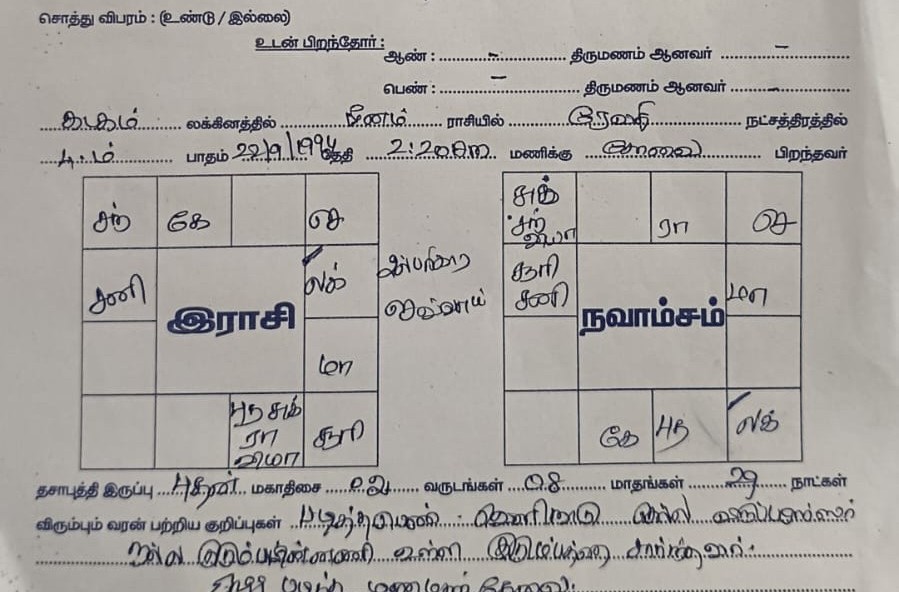 சொத்து விபரம் : (உண்டு / இல்லை)
உடன் பிறந்தோர் :
ஆண் : ..... – ..... திருமணம் ஆனவர் ..... – .....
பெண் : ..... – ..... திருமணம் ஆனவர் ..... – .....
கடகம் லக்கினத்தில் மீனம் ராசியில் ரேவதி நட்சத்திரத்தில்
4.ம் பாதம் 22/9/1994 தேதி 2:20am மணிக்கு பிறந்தவர்
சந் கே செ
சனி லக்
இராசி
மா
புத சுக் ரா வியா சூரி
செவ்வாய்
சுக் சந் வியா ரா செ
சூரி சனி மா
நவாம்சம்
கே புத லக்
தசாபுத்தி இருப்பு புதன் மகாதிசை வருடங்கள் 08 மாதங்கள் 29 நாட்கள்
விரும்பும் வரன் பற்றிய குறிப்புகள் படித்த பெண்
நல்ல உள்ள
படித்த மணமகன் தேவை.